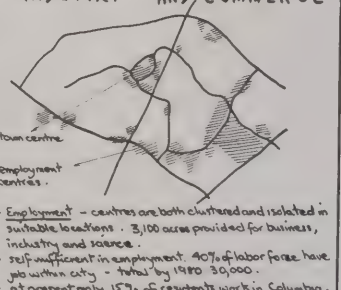 AND COMMERCE
town centre
employment
centres.
Employment - centres are both clustered and isolated in
suitable locations. 3,100 acres provided for business,
industry and science.
self sufficient in employment. 40% of labor force have
job within city - total by 1980 30,000.
at present only 15% of residents work in Columbia.